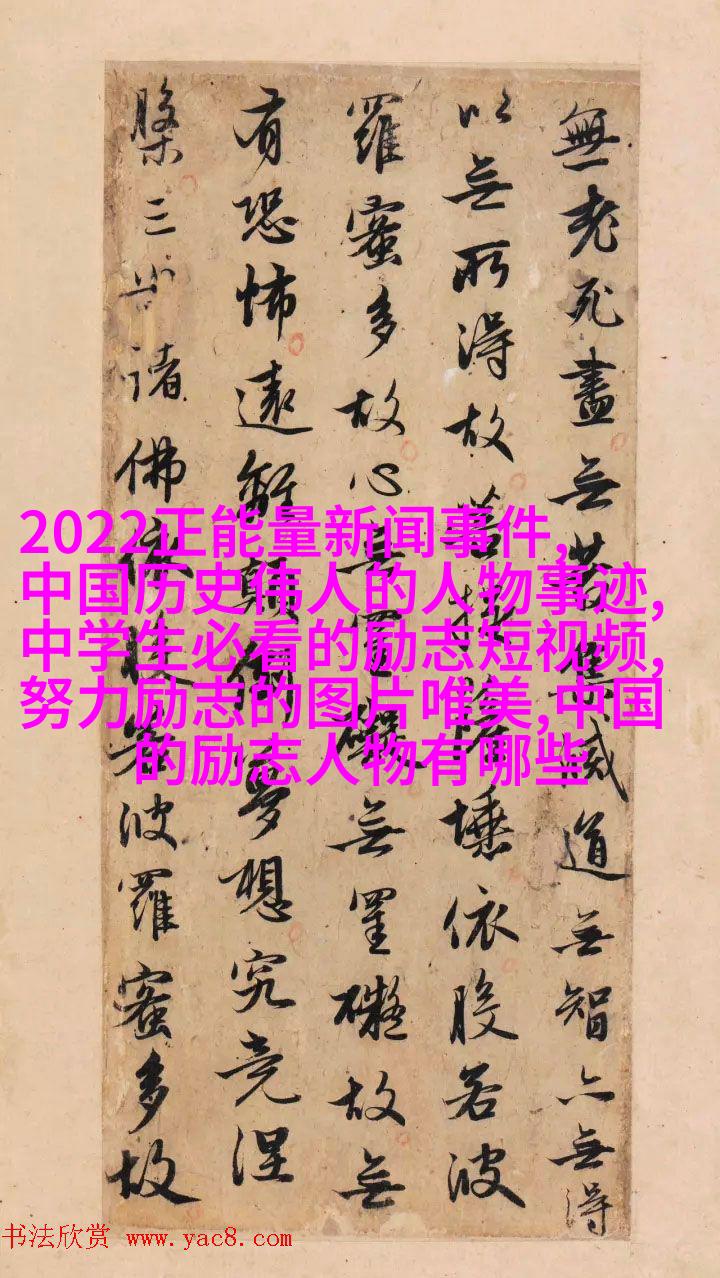 無老死盡无苦集滅道无智亦无得
以无所得故菩提薩埵依般若波
羅蜜多故心无罣礙无罣礙故无
有恐怖遠離顛倒夢想究竟涅
槃三世諸佛依般若波羅蜜多故
2022正能量新闻事件,
中国历史伟人的人物事迹,
中学生必看的励志短视频,
努力励志的图片唯美,中国
的励志人物有哪些
书法欣赏 www.yac8.com